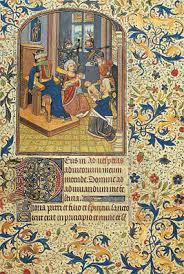 Deus in
adiutorium meum
intende. Domine ad
adiuuandum me fe
stina.
Gloria patri et filio et spiritui sancto
Sicut erat in principio et nunc et